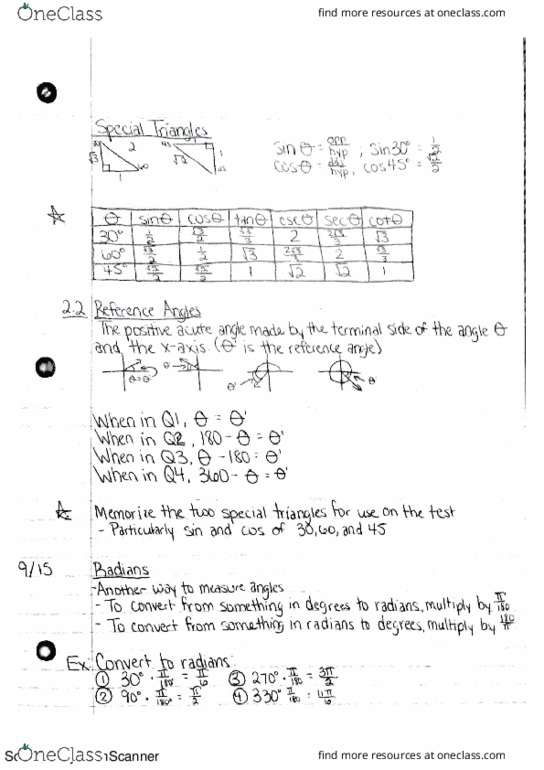 OneClass
find more resources at oneclass.com
Special Triangles
30 2 √3 60 1
45 √2 1 45 1
sin θ = opp/hyp ; sin30° = 1/2
cos θ = adj/hyp, cos45° = √2/2
θ sinθ cosθ tanθ cscθ secθ cotθ
30° 1/2 √3/2 √3/3 2 2√3/3 √3
60° √3/2 1/2 √3 2√3/3 2 √3/3
45° √2/2 √2/2 1 √2 √2 1
2.2 Reference Angles
The positive acute angle made by the terminal side of the angle θ
and the x-axis. (θ' is the reference angle)
θ=θ' θ' θ' θ'
When in Q1, θ = θ'
When in Q2, 180 - θ = θ'
When in Q3, θ - 180 = θ'
When in Q4, 360 - θ = θ'
Memorize the two special triangles for use on the test
- Particularly sin and cos of 30, 60, and 45
9/15 Radians
-Another way to measure angles
- To convert from something in degrees to radians, multiply by π/180
- To convert from something in radians to degrees, multiply by 180/π
Ex: Convert to radians:
① 30° · π/180° = π/6 ③ 270° · π/180 = 3π/2
② 90° · π/180° = π/2 ④ 330° π/180 = 11π/6
Sc OneClass Scanner
find more resources at oneclass.com